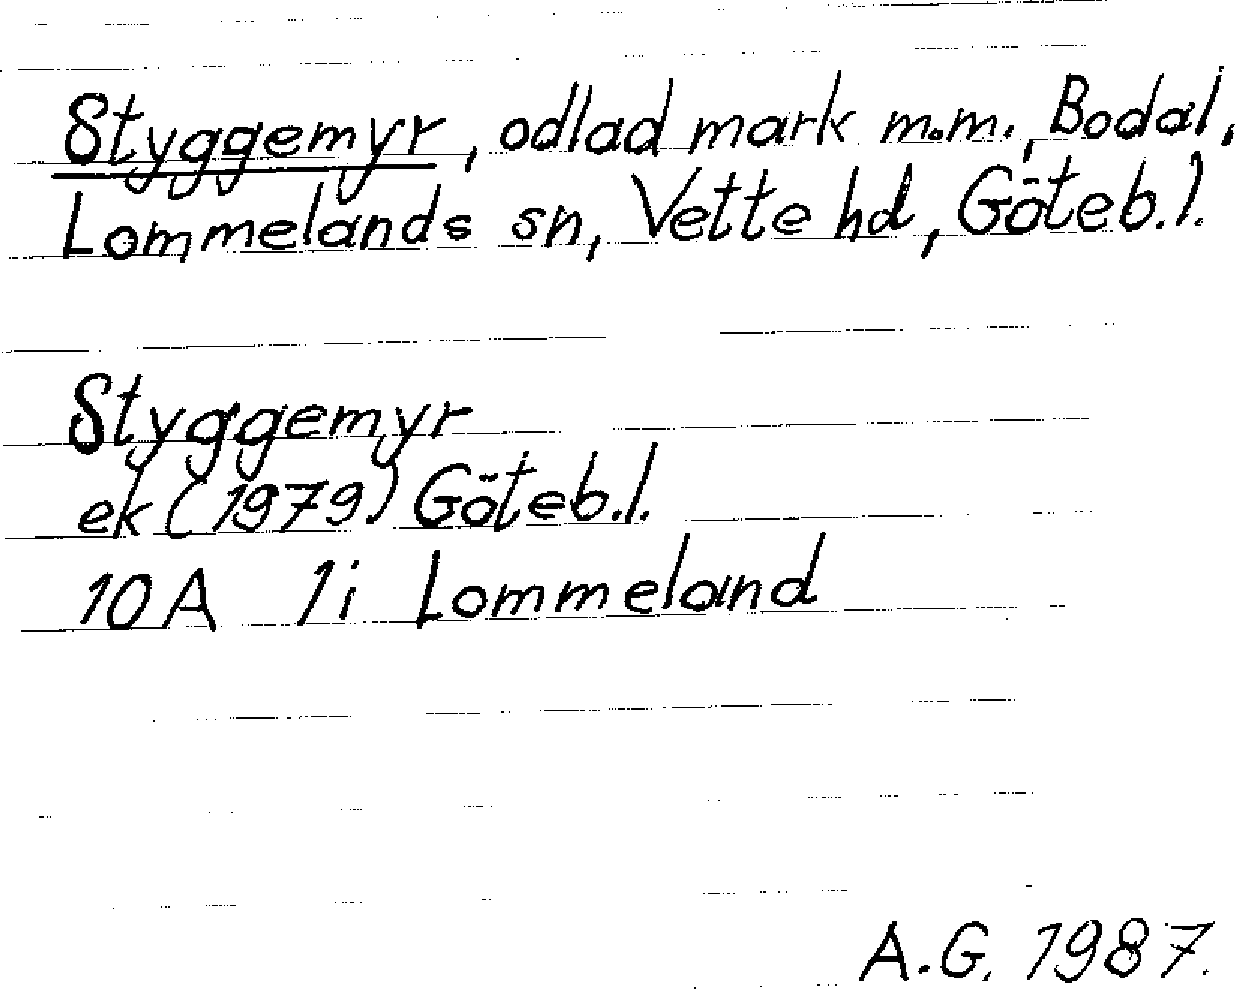 Styggemyr, odlad mark m.m., Bodal,
Lommelands sn, Vette hd, Göteb.l.
Styggemyr
ek (1979) Göteb.l.
10A 1i Lommeland
A.G. 1987.